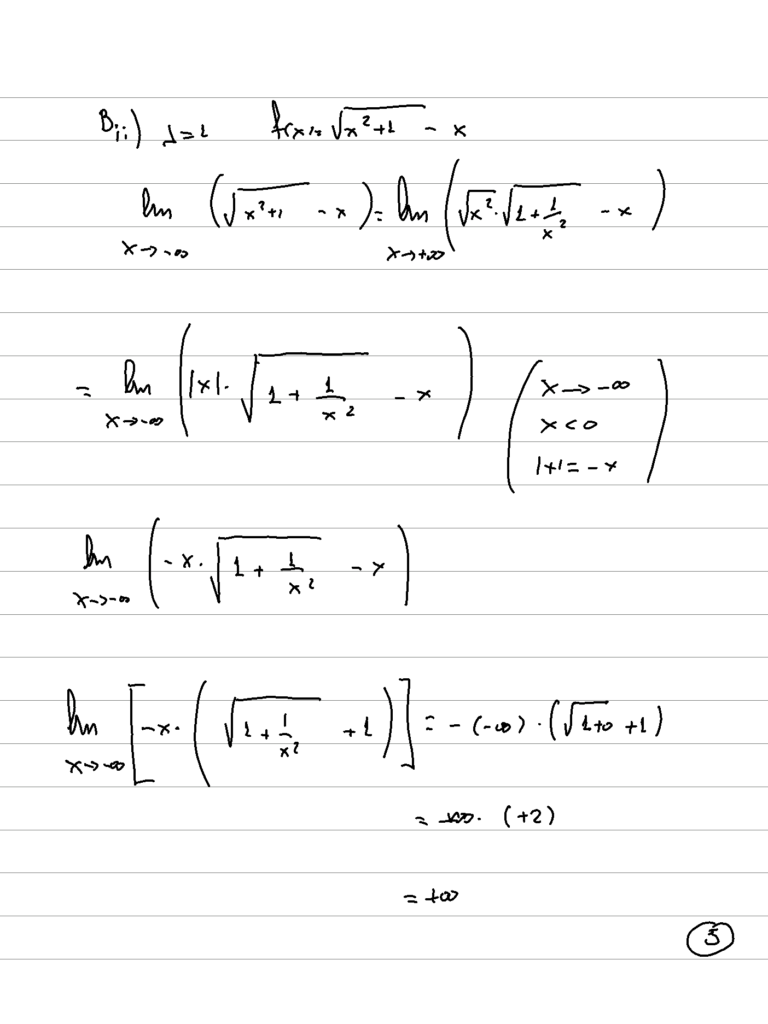 Bii) λ=1 f(x)=√(x²+1) - x
lim x→-∞ (√(x²+1) - x) = lim x→+∞ (√x² · √(1+1/x²) - x)
= lim x→-∞ (|x| · √(1+1/x²) - x) (x→-∞
x<0
|x|=-x)
lim x→-∞ (-x · √(1+1/x²) - x)
lim x→-∞ [-x · (√(1+1/x²) +1)] = -(-∞) · (√(1+0) +1)
= +∞ · (+2)
= +∞
5